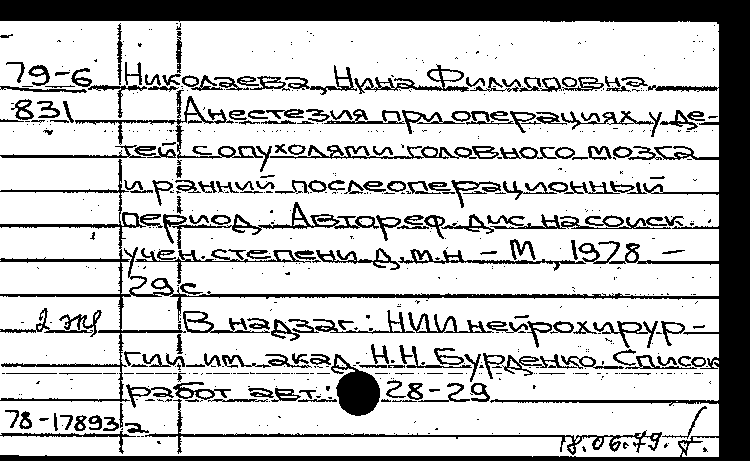 79-6 Николаева, Нина Филипповна
831 Анестезия при операциях у де-
тей с опухолями головного мозга
и ранний послеоперационный
период.: Автореф. дис. на соиск.
учен. степени д.м.н - М., 1978 -
29 с.
2 экз В надзаг.: НИИ нейрохирур-
гии им. акад. Н.Н. Бурденко. Список
работ авт.: 28-29
78-17893а
18.06.79.